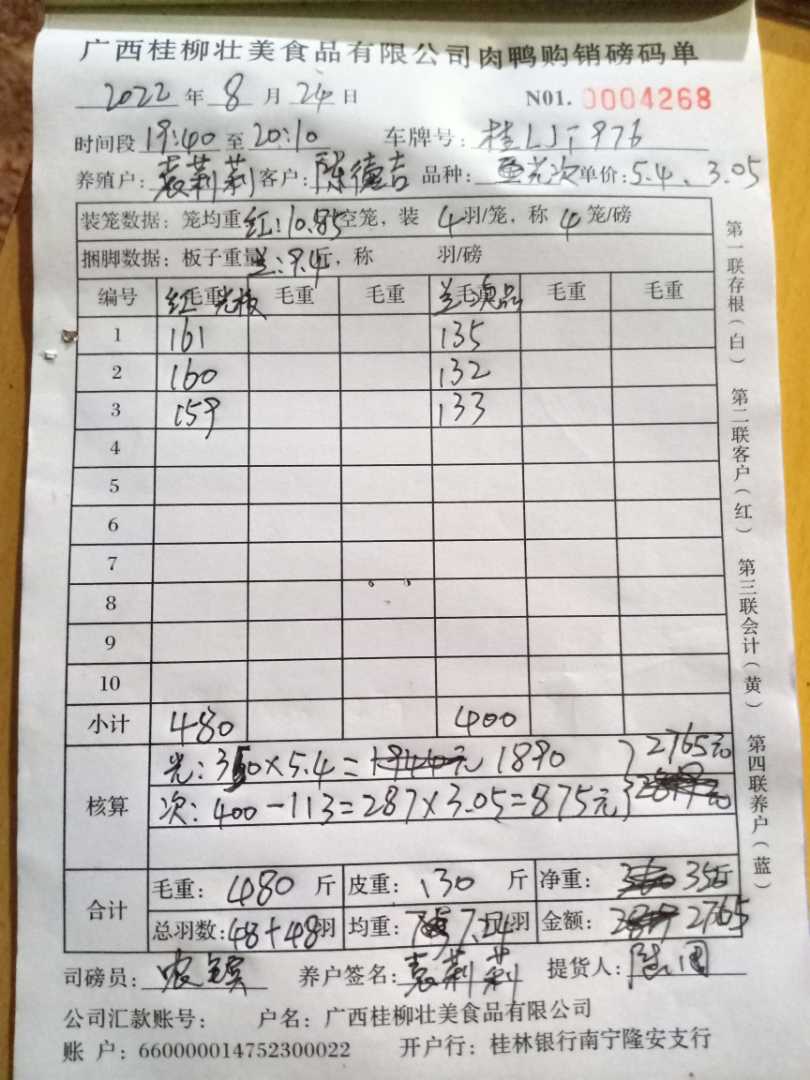 广西桂柳壮美食品有限公司肉鸭购销磅码单
2022 年 8 月 24 日 N01. 0004268
时间段 19:40 至 20:10 车牌号: 桂LJT976
养殖户: 袁莉莉 客户: 陈德吉 品种: 次 单价: 5.4、3.05
装笼数据: 笼均重 红:10.85 空笼, 装 4 羽/笼, 称 4 笼/磅
捆脚数据: 板子重量 兰:9.4 斤, 称 羽/磅
编号 毛重 红 光板 毛重 毛重 毛重 兰 次品 毛重 毛重
1 161 135
2 160 132
3 159 133
4
5
6
7
8
9
10
小计 480 400
核算 光: 350×5.4= 1890 } 2765元
次: 400-113=287×3.05=875元
合计 毛重: 480 斤 皮重: 130 斤 净重: 350 斤
总羽数: 48+48 羽 均重: 7.24 斤/羽 金额: 2765
司磅员: 养户签名: 袁莉莉 提货人:
公司汇款账号: 户名: 广西桂柳壮美食品有限公司
账 户: 660000014752300022 开户行: 桂林银行南宁隆安支行
第一联存根(白) 第二联客户(红) 第三联会计(黄) 第四联养户(蓝)